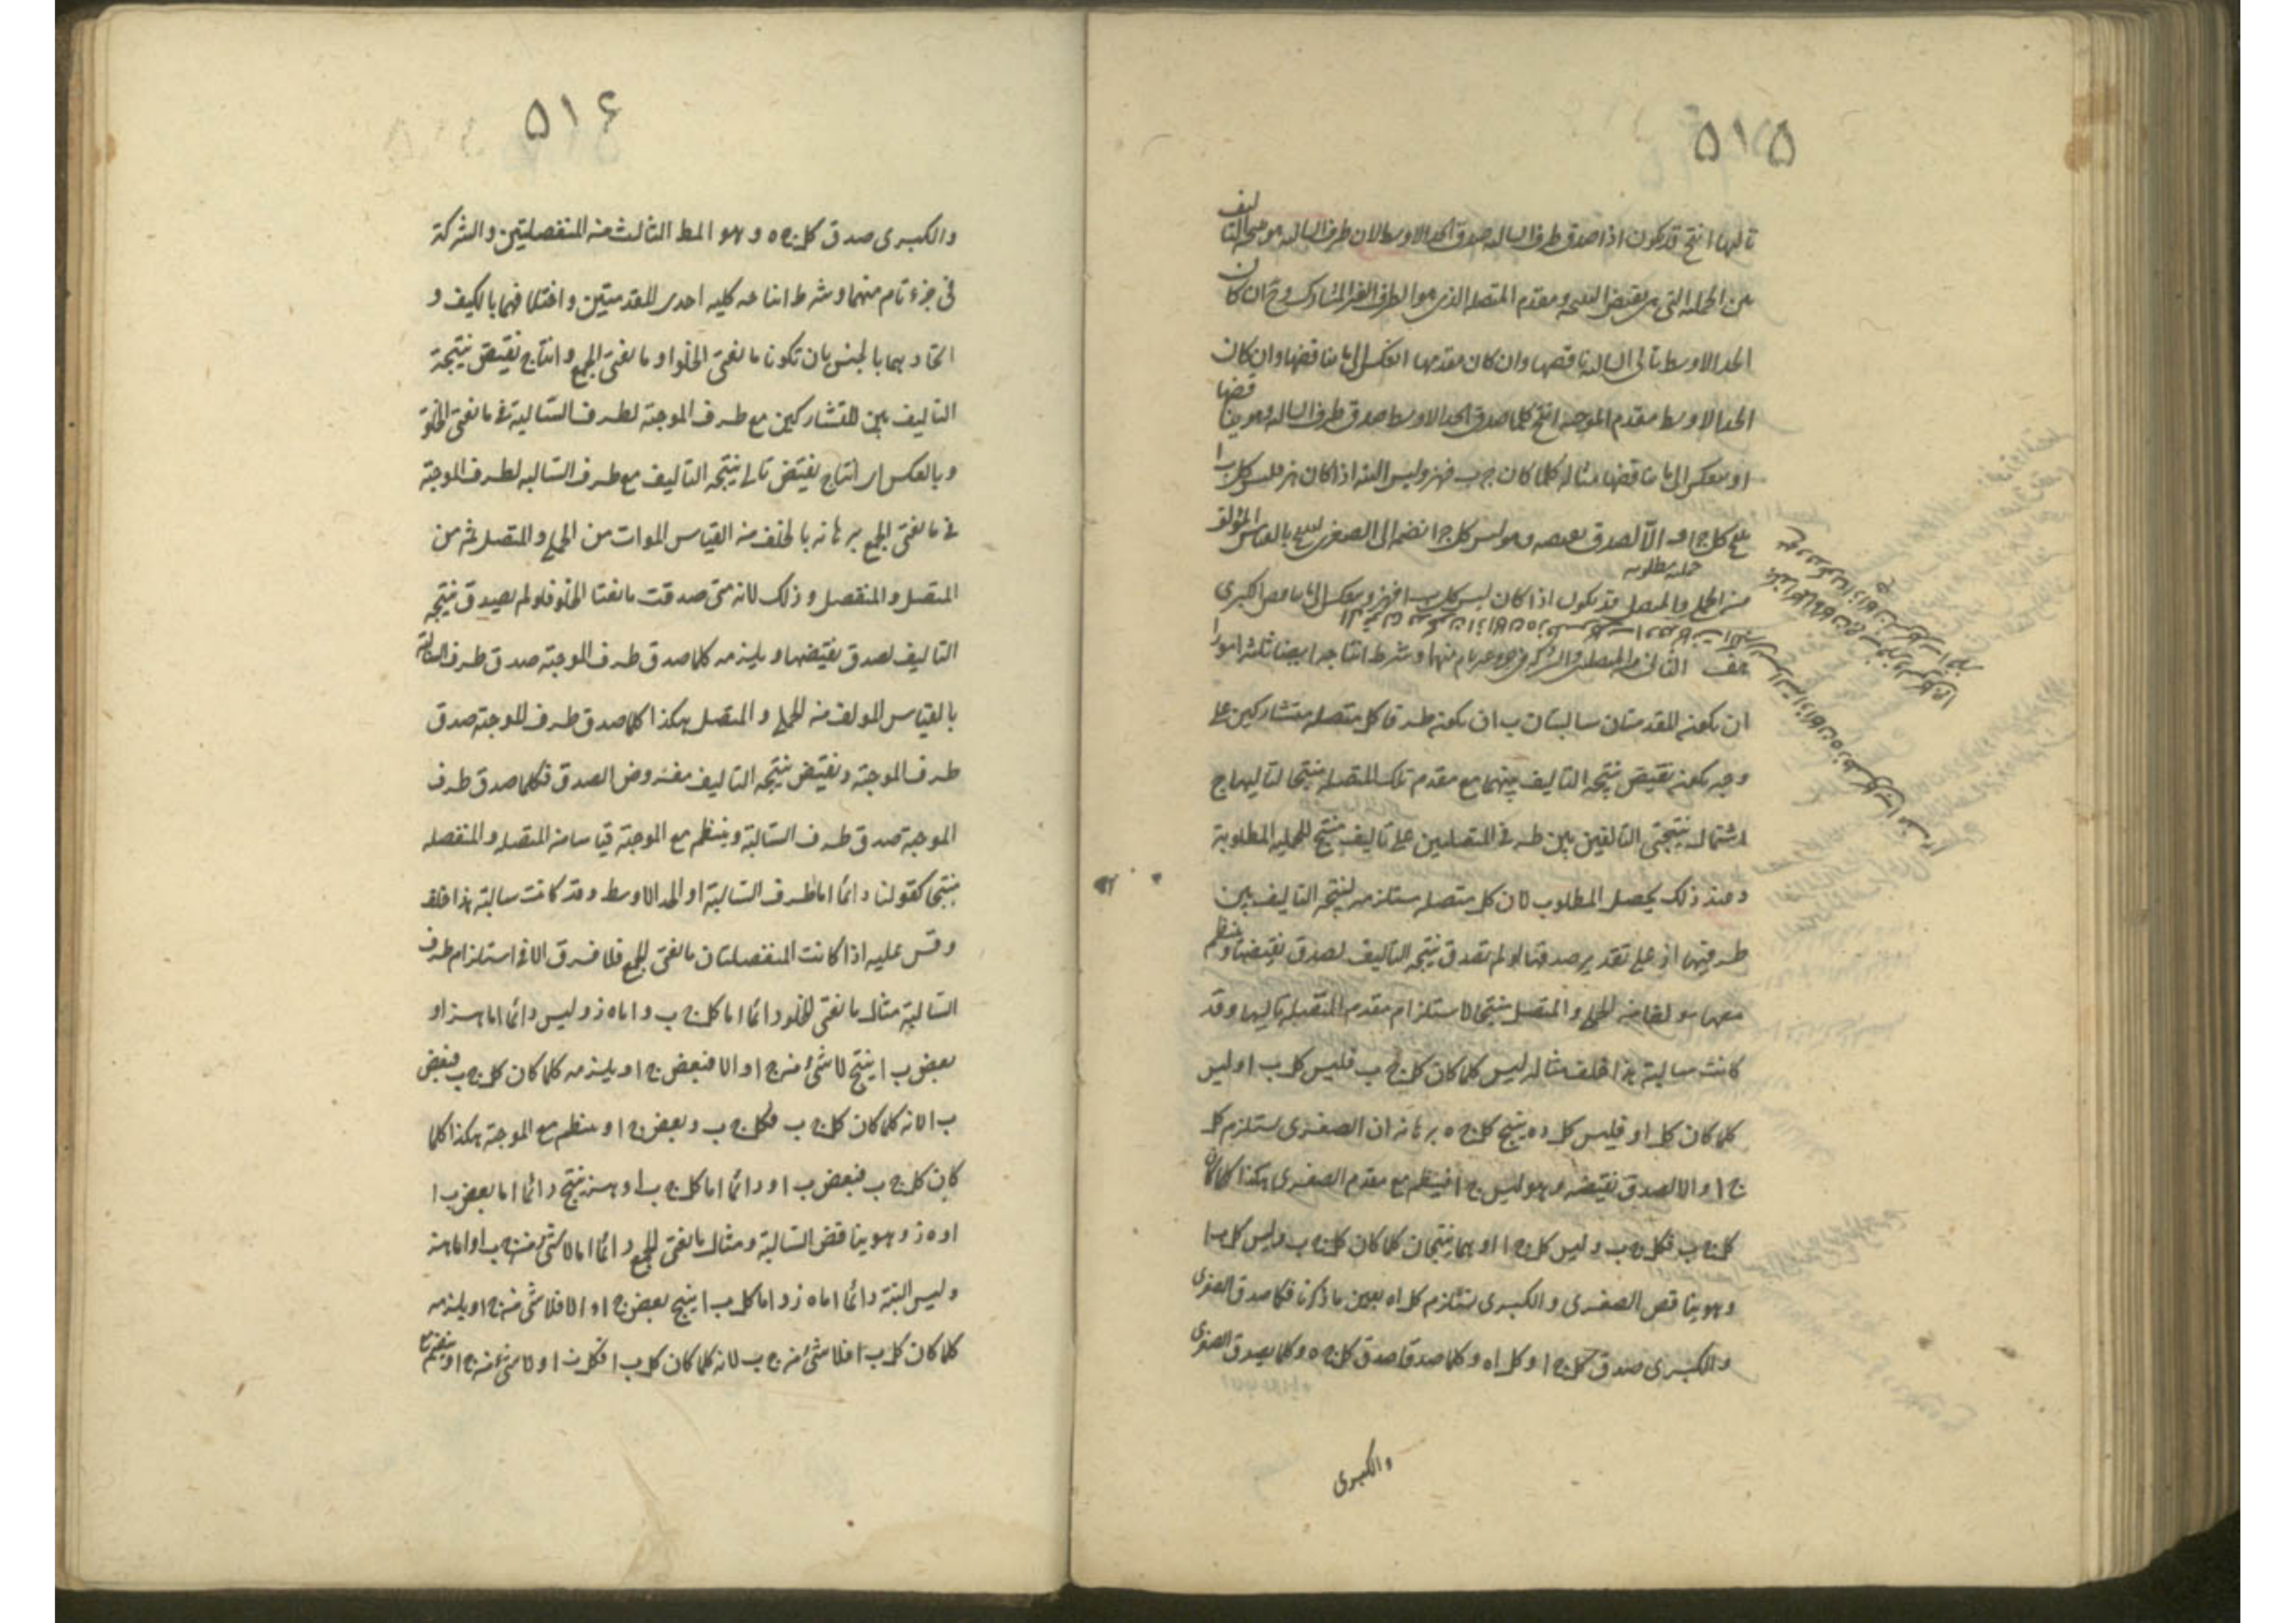 ٥١٥
تاليها انتج قد يكون اذا صدق طرف السالبه صدق الحد الاوسط لان طرف السالبه هو نتيجة التاليف
من الحملية التى هى نقيض النتيجه ومقدم المتصله الذى هو الطرف الغير المشارك وح ان كان
الحد الاوسط تالى السالبه ناقضها وان كان مقدمها انعكس الى ما يناقضها وان كان
الحد الاوسط مقدم الموجبه انتج كلما صدق الحد الاوسط صدق طرف السالبه وهو يناقضها
او ينعكس الى ما يناقضها مثاله كلما كان ج ب فهز وليس البته اذا كان هز فليس كل ب ا
ينتج كل ج ا و الّا لصدق نقيضه وهو ليس كل ج ا نضمه الى الصغرى لينتج بالقياس المؤلف
حمليه مطلوبه
من الحملى والمتصل قد يكون اذا كان ليس كل ب ا فهز وينعكس الى ما يناقض الكبرى
هف الثانى من المتصلتين والشركة فى جزء غير تام منهما وشرط انتاجه ايضا ثلثه امور ا
ان يكون المقدمتان سالبتان ب ان يكون طرفا كل متصله متشاركين على
وجه يكون نقيض نتيجه التاليف بينهما مع مقدم تلك المتصله منتجا لتاليها ج
اشتمال نتيجتى التاليفين بين طرفى المتصلتين على تاليف منتج للحمليه المطلوبة
وعند ذلك يحصل المطلوب لان كل متصله ستلزمه لنتيجه التاليف بين
طرفيها اذ على تقدير صدقها لو لم تصدق نتيجه التاليف لصدق نقيضها وينتظم
معها مولفا من الحملى والمتصل منتجا لاستلزام مقدم المتصله تاليها وقد
كانت سالبة هذا خلف مثاله ليس كلما كان كل ج ب فليس كل ب ا وليس
كلما كان كل ا و فليس كل د ه ينتج كل ج ه برهانه ان الصغرى يستلزم كل
ج ا والا لصدق نقيضه وهو ليس ج ا فينتظم مع مقدم الصغرى هكذا كلما كان
كل ج ب فكل ج ب وليس كل ج ا وهما ينتجان كلما كان كل ج ب وليس كل ب ا
وهو يناقض الصغرى والكبرى تستلزم كل ا ه بعين ما ذكرنا فكلما صدق الصغرى
والكبرى صدق كل ج ا وكل ا ه وكلما صدقا صدق كل ج ه وكلما يصدق الصغرى
والكبرى
٥١۶
والكبرى صدق كل ج ه وهو المط الثالث من المنفصلتين والشركة
فى جزء تام منهما وشرط انتاجه كليه احدى المقدمتين واختلافهما بالكيف و
اتحادهما بالجنس بان تكونا مانعتى الخلو او مانعتى الجمع وانتاج نقيض نتيجة
التاليف بين المتشاركين مع طرف الموجبة لطرف السالبة فى مانعتى الخلو
وبالعكس اى انتاج نقيض تالى نتيجه التاليف مع طرف السالبه لطرف الموجبة
فى مانعتى الجمع برهانه بالخلف من القياس الموات من الحملى والمتصل ثم من
المتصل والمنفصل وذلك لانه متى صدقت مانعتا الخلو فلو لم يصدق نتيجه
التاليف لصدق نقيضها ويلزمه كلما صدق طرف الموجبة صدق طرف السالبة
بالقياس المولف من الحملى والمتصل هكذا كلما صدق طرف الموجبة صدق
طرف الموجبة ونقيض نتيجه التاليف مفروض الصدق فكلما صدق طرف
الموجبة صدق طرف السالبة وينتظم مع الموجبة قياسا من المتصله والمنفصله
منتجا كقولنا دائما اما طرف السالبة او الحد الاوسط وقد كانت سالبة هذا خلف
وقس عليه اذا كانت المنفصلتان مانعتى الجمع فلا فرق الا فى استلزام طرف
السالبة مثال مانعتى الخلو دائما اما كل ج ب واما ه ز وليس دائما اما ه ز او
بعض ب ا ينتج لا شئ من ج ا والا فبعض ج ا ويلزمه كلما كان كل ج ب فبعض
ب ا لانه كلما كان كل ج ب فكل ج ب وبعض ج ا وينتظم مع الموجبة هكذا كلما
كان كل ج ب فبعض ب ا ودائما اما كل ج ب او ه ز ينتج دائما اما بعض ب ا
او ه ز وهو يناقض السالبة ومثال مانعتى الجمع دائما اما لا شئ من ج ب او اما ه ز
وليس البتة دائما اما ه ز واما كل ب ا ينتج بعض ج ا والا فلا شئ من ج ا ويلزمه
كلما كان كل ب ا فلا شئ من ج ب لانه كلما كان كل ب ا فكل ب ا ولا شئ من ج ا وينضم مع